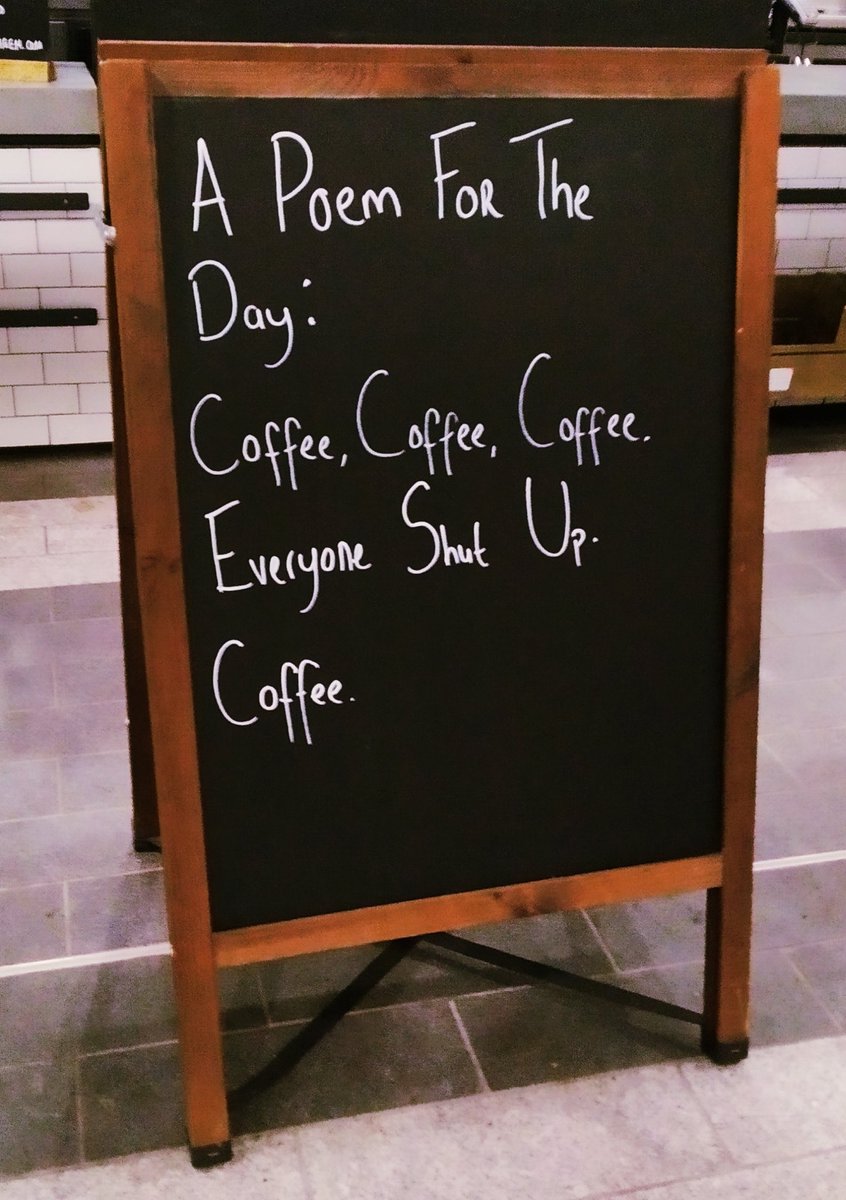 A Poem For The
Day:
Coffee, Coffee, Coffee.
Everyone Shut Up.
Coffee.